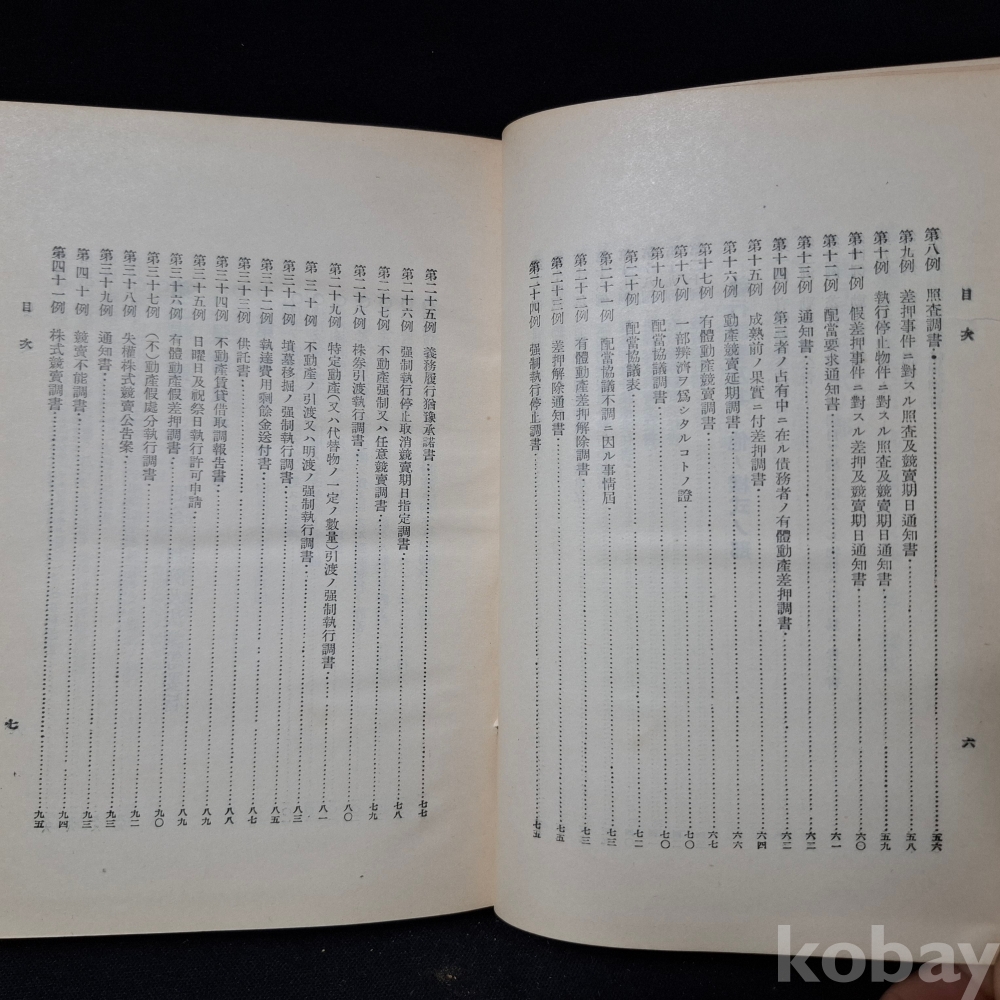 目次
六
第八例 照査調書 五六
第九例 差押事件ニ對スル照査及競賣期日通知書 五八
第十例 執行停止物件ニ對スル照査及競賣期日通知書 五九
第十一例 假差押事件ニ對スル差押及競賣期日通知書 六〇
第十二例 配當要求通知書 六一
第十三例 通知書 六二
第十四例 第三者ノ占有中ニ在ル債務者ノ有體動產差押調書 六三
第十五例 成熟前ノ果實ニ付差押調書 六四
第十六例 動產競賣延期調書 六六
第十七例 有體動產競賣調書 六七
第十八例 一部辨濟ヲ爲シタルコトノ證 七〇
第十九例 配當協議調書 七〇
第二十例 配當協議表 七二
第二十一例 配當協議不調ニ因ル事情屆 七三
第二十二例 有體動產差押解除調書 七三
第二十三例 差押解除通知書 七五
第二十四例 强制執行停止調書 七五
第二十五例 義務履行猶豫承諾書 七七
第二十六例 强制執行停止取消競賣期日指定調書 七八
第二十七例 不動產强制又ハ任意競賣調書 七九
第二十八例 株券引渡執行調書 八〇
第二十九例 特定動產(又ハ代替物ノ一定ノ數量)引渡ノ强制執行調書 八一
第三十例 不動產ノ引渡又ハ明渡ノ强制執行調書 八三
第三十一例 墳墓移掘ノ强制執行調書 八五
第三十二例 執達費用剩餘金送付書 八七
第三十三例 供託書 八八
第三十四例 不動產賃貸借取調報告書 八九
第三十五例 日曜日及祝祭日執行許可申請 八九
第三十六例 有體動產假差押調書 九〇
第三十七例 (不)動產假處分執行調書 九二
第三十八例 失權株式競賣公告案 九三
第三十九例 通知書 九三
第四十例 競賣不能調書 九四
第四十一例 株式競賣調書 九五
目次
七
kobay